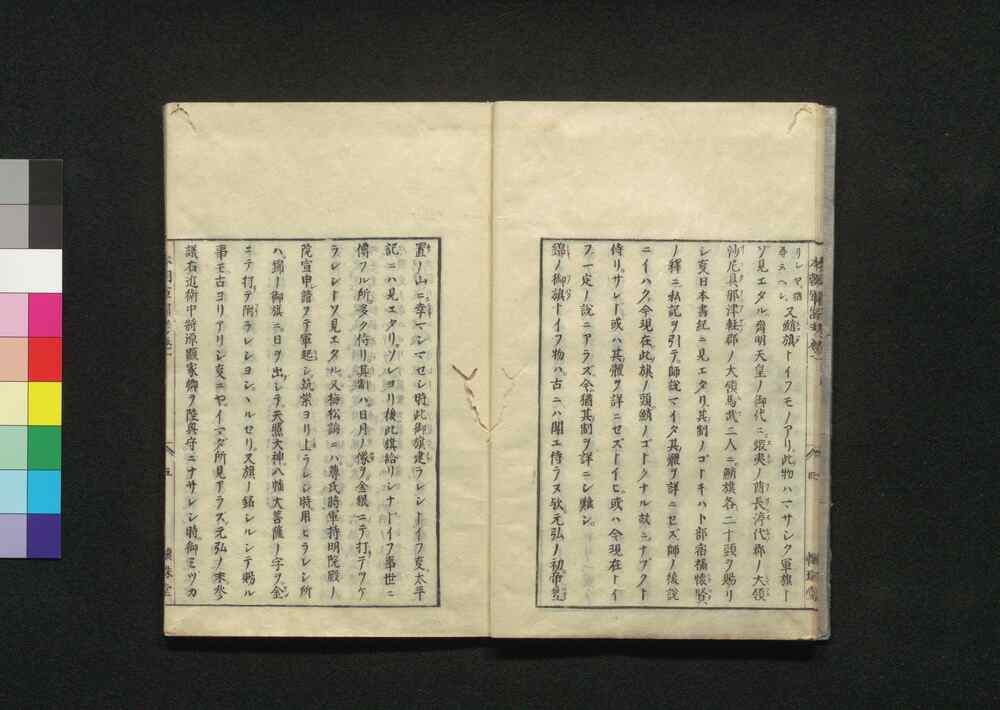 又鮹旗トイフモノアリ。此物ハマサシク軍旗ト
ゾ見エタル齊明天皇ノ御代ニ蝦夷ノ酋長渟代郡ノ大領
沙尼具那津軽郡ノ大領馬武二人ニ鮹旗各二十頭ヲ賜リ
シ夏日本書紀ニ見エタリ。其制ノゴトキハト部宿禰懐賢
ノ釋ニ私記ヲ引テ。師說マイタ其躰ヲ詳ニセズ師ノ後說
ニイハク。今現在此旗ノ頭鮹ノゴトクナル故ニナヅクト
侍リ。サレド或ハ其躰ヲ詳ニセズトイヒ。或ハ今現在トイ
フ。一定ノ說ニアラズ。今猶其制ヲ詳ニシ難シ。
錦ノ御旗トイフ物ハ古ニハ聞エ侍ラス欤元弘ノ初帝笠
置ノ山ニ幸マシマセシ時。此御旗建ラレシトイフ夏太平
記ニハ見エタリ。ソレヨリ後此旗給リシナドイフ事世ニ
傳フル所多ク侍リ其制ハ日月ノ像ヲ金銀ニテ打テツケ
ラレシトゾ見エタル。又梅松論ニハ尊氏將軍持明院殿ノ
院宣申請ヲテ軍起シ筑紫ヨリ上ラレシ時。用ヒラレシ所
ハ錦ノ御旗ニ。日ヲ出シテ。天照大神八幡大菩薩ノ字ヲ。金
ニテ打テ附ラレシヨシシルセリ。ス旗ノ銘シルシテ賜ル
事。王古ヨリアリシ夏ニヤ。イマダ所見アラス。元弘ノ末。參
議右近衛中將源顯家卿ヲ陸奥守ニナサレシ時。御ミヅカ
五